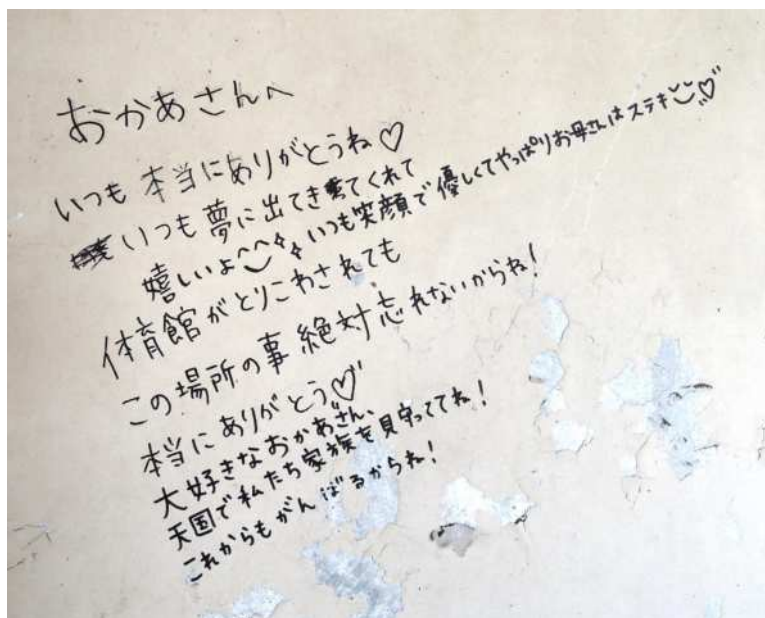 おかあさんへ
いつも本当にありがとうね♡
いつも夢に出てきてくれて
嬉しいよ いつも笑顔で優しくてやっぱりお母さんはステキ♡
体育館がとりこわされても
この場所の事絶対忘れないからね!
本当にありがとう♡
大好きなおかあさん、
天国で私たち家族を見守っててね!
これからもがんばるからね!